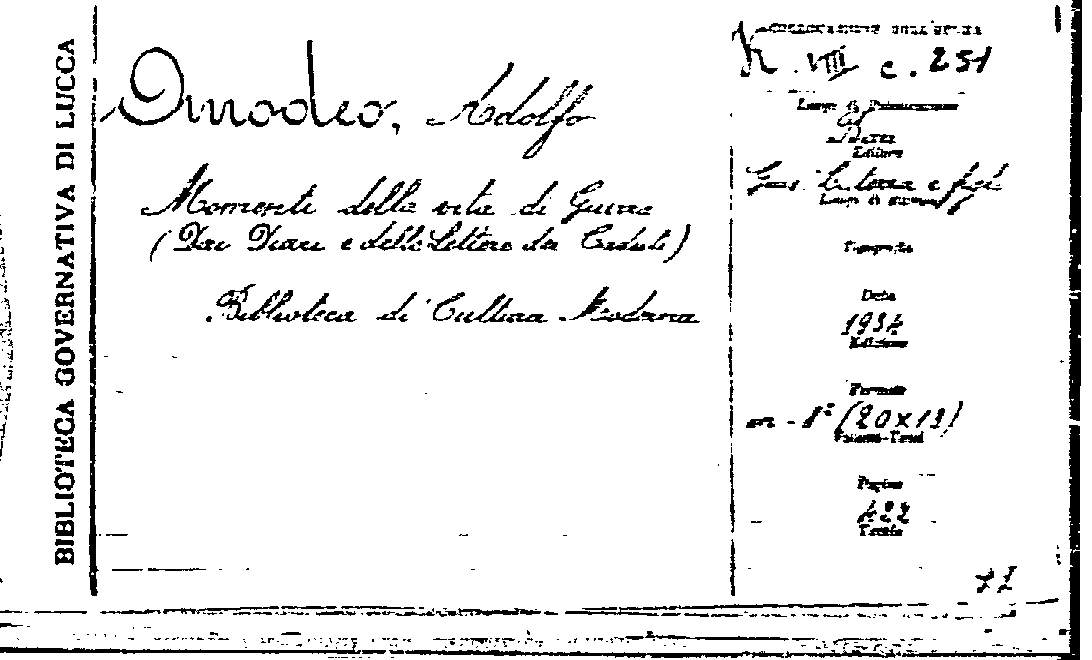 BIBLIOTECA GOVERNATIVA DI LUCCA
Omodeo, Adolfo
Momenti della vita di Guerra
(Dai Diari e dalle Lettere dei Caduti)
Biblioteca di Cultura Moderna
COLLOCAZIONE DELL'OPERA
K. VIII c. 251
Luogo di Pubblicazione
Bari
Editore
Gius. Laterza e figli
Luogo di stampa
Tipografia
Data
1934
Edizione
Formato
in - 8° (20x13)
Volumi-Tomi
Pagine
422
Tavole